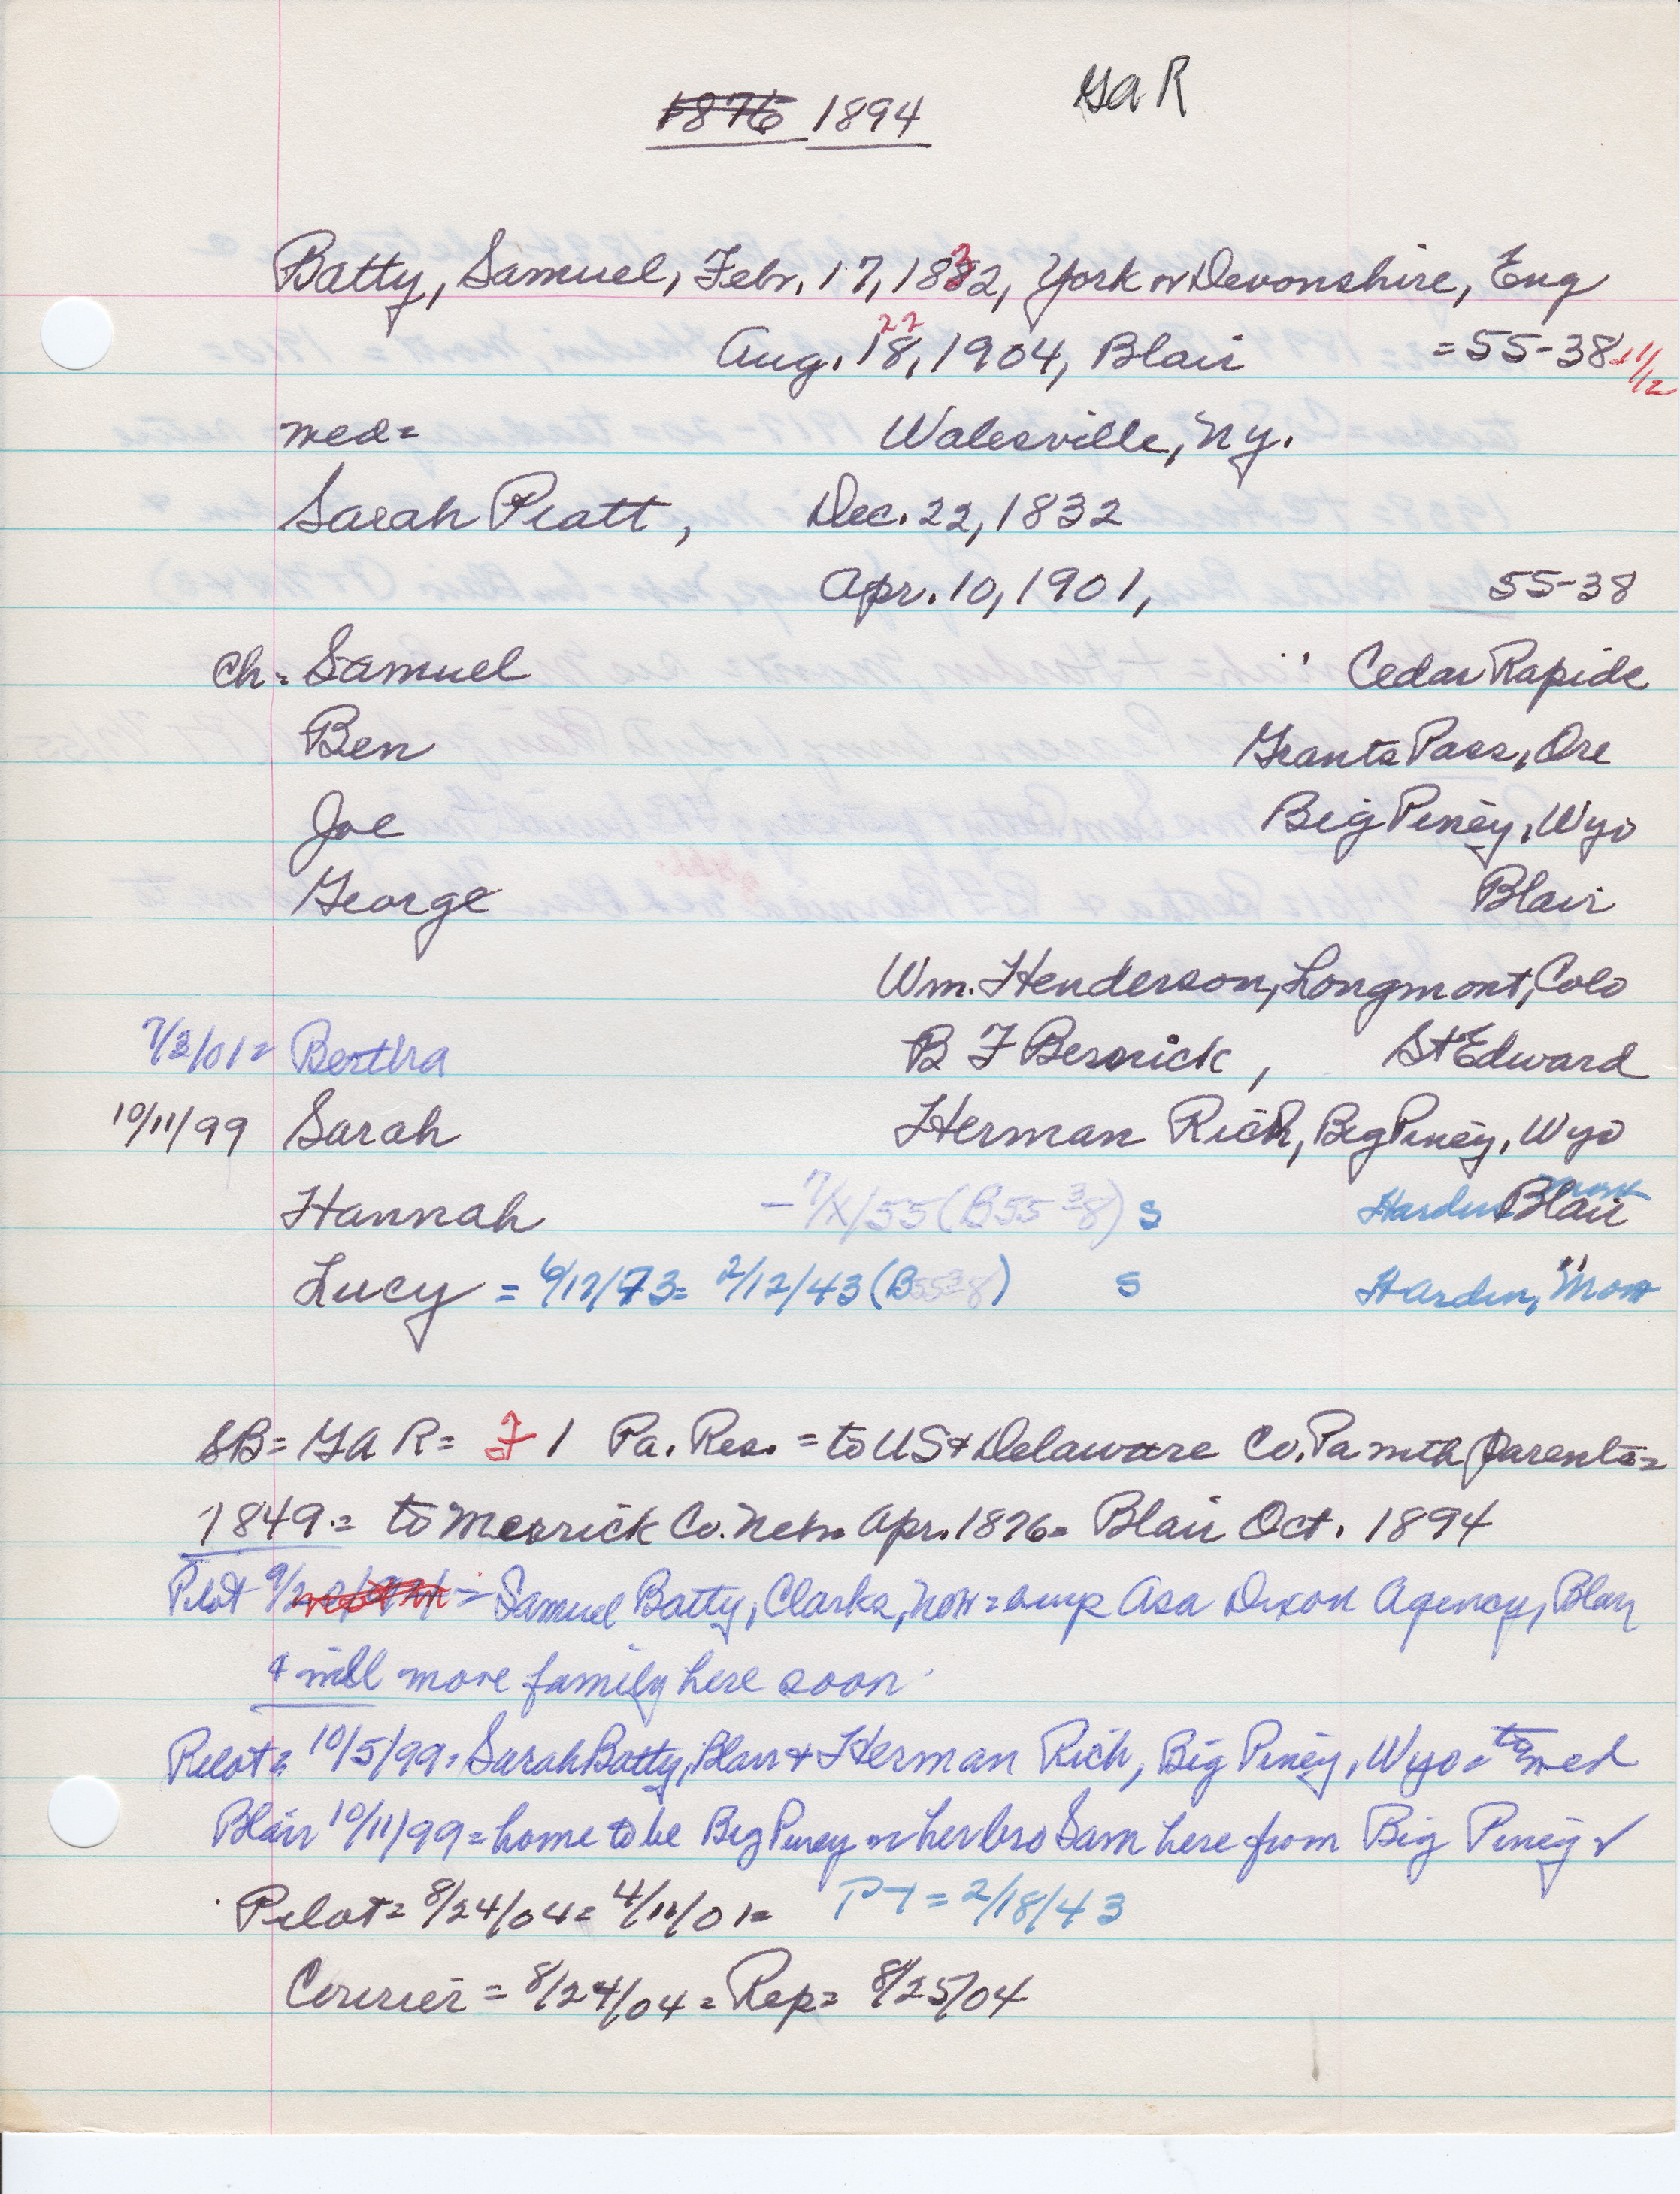 1876 1894 GaR
Batty, Samuel, Febr. 17, 1832, York or Devonshire, Eng
22
Aug. 18, 1904, Blair =55-38-11/12
med= Walesville, Ny.
Sarah Pratt, Dec. 22, 1832
Apr. 10, 1901, 55-38
Ch= Samuel Cedar Rapids
Ben Grants Pass, Ore
Joe Big Piney, Wyo
George Blair
Wm. Henderson, Longmont, Colo
7/3/01= Bertha B F Beswick, St Edward
10/11/99 Sarah Herman Rich, Big Piney, Wyo
Hannah - 7/X/55 (B55 38) s Hardin Mont Blair
Lucy = 6/12/73= 2/12/43 (B5538) s Hardin, Mont "
SB= GAR= F 1 Pa. Res. = to US & Delaware Co. Pa with parents=
1849.= to Merrick Co. Neb= Apr. 1876= Blair Oct. 1894
Pilot 9/2 = Samuel Batty, Clarks, now = emp Asa Dixon Agency, Blair
& will move family here soon.
Pilot= 10/5/99= Sarah Batty, Blair & Herman Rich, Big Piney, Wyo= to med
Blair 10/11/99= home to be Big Piney or her bro Sam here from Big Piney ✓
Pilot= 8/24/04= 4/11/01= PT= 2/18/43
Courier = 8/24/04= Rep= 8/25/04